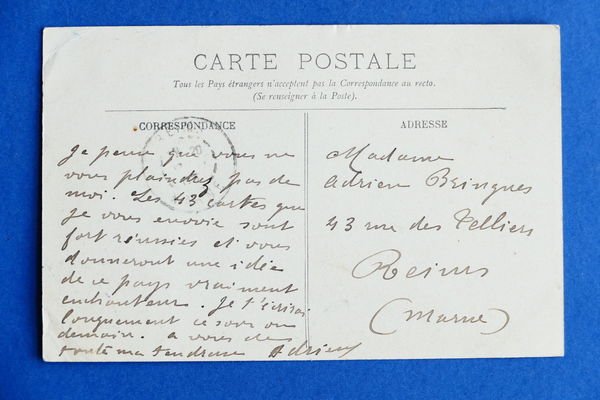 CARTE POSTALE
Tous les Pays étrangers n'acceptent pas la Correspondance au recto.
(Se renseigner à la Poste).
CORRESPONDANCE
Je pense que vous ne
vous plaindrez pas de
moi. Les 43 cartes que
je vous envoie sont
fort réussies et vous
donneront une idée
de ce pays vraiment
enchanteur. Je t'écrirai
longuement ce soir ou
demain. a vous deux
toute ma tendresse Adrien
ADRESSE
Madame
Adrien Bringues
43 rue des Telliers
Reims
(Marne)